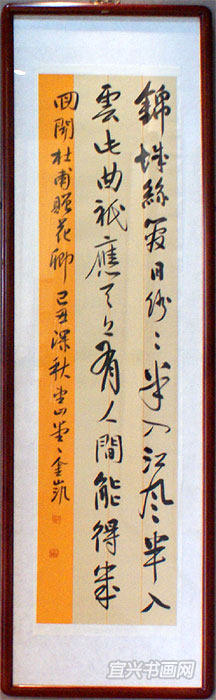 錦城絲管日紛〻半入江風半入
雲此曲祇應天上有人間能得幾
回聞杜甫贈花卿 己丑深秋 山堂 金凱
宜兴书画网